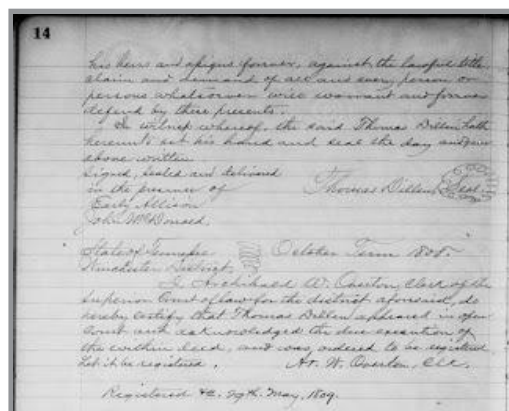 14
his heirs and assigns forever, against the lawful title
claim and demand of all and every person or
persons whatsoever will warrant and forever
defend by these presents.
In witness whereof, the said Thomas Dillen hath
hereunto set his hand and seal the day and year
above written
Signed, sealed and delivered
in the presence of
Thomas Dillen Seal
Early Allison
John McDonald.
State of Tennessee
October Term 1808.
Winchester District.
I Archibald W. Overton, Clerk of the
Superior Court of law for the district aforesaid, do
hereby certify that Thomas Dillen appeared in open
Court and acknowledged the due execution of
the within deed, and was ordered to be registered
Let it be registered. A. W. Overton, Clk.
Registered 29th. May, 1809.